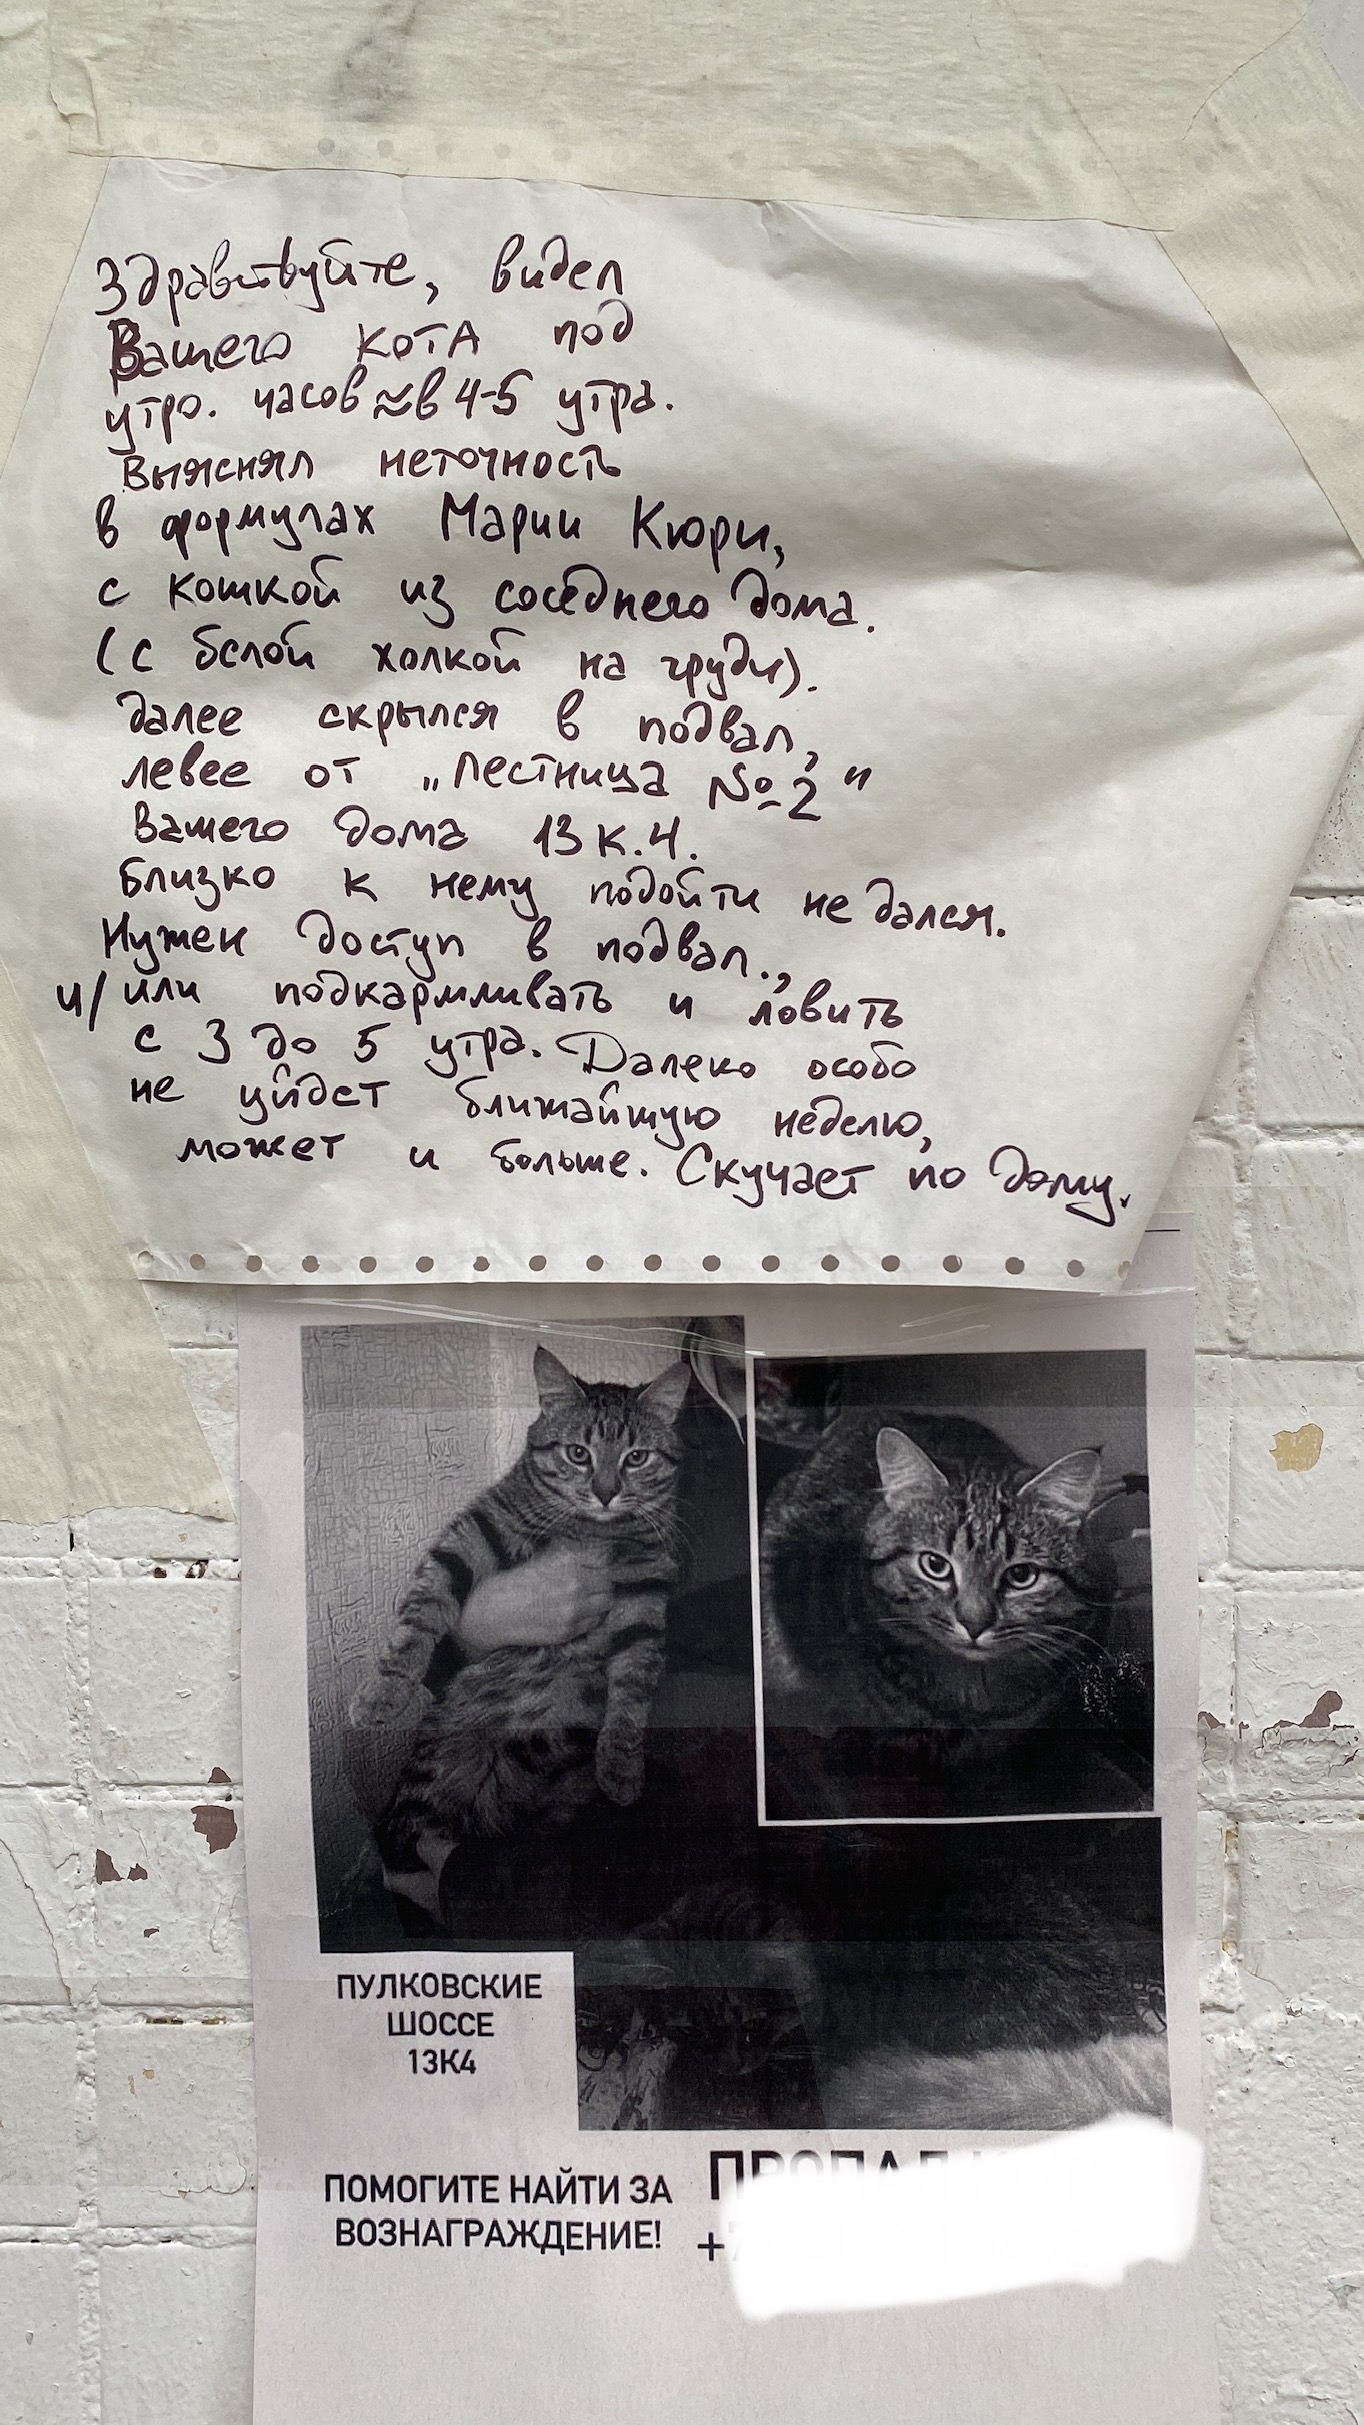 Здравствуйте, видел
Вашего кота под
утро. часов ≈в 4-5 утра.
Выяснял неточность
в формулах Марии Кюри,
с кошкой из соседнего дома.
(с белой холкой на груди).
далее скрылся в подвал,
левее от „Лестница №2"
Вашего дома 13 к.4.
Близко к нему подойти не дался.
Нужен доступ в подвал.,
и/или подкармливать и ловить
с 3 до 5 утра. Далеко особо
не уйдет ближайшую неделю,
может и больше. Скучает по дому.
ПУЛКОВСКИЕ
ШОССЕ
13К4
ПОМОГИТЕ НАЙТИ ЗА
ВОЗНАГРАЖДЕНИЕ!
ПРОПАЛ